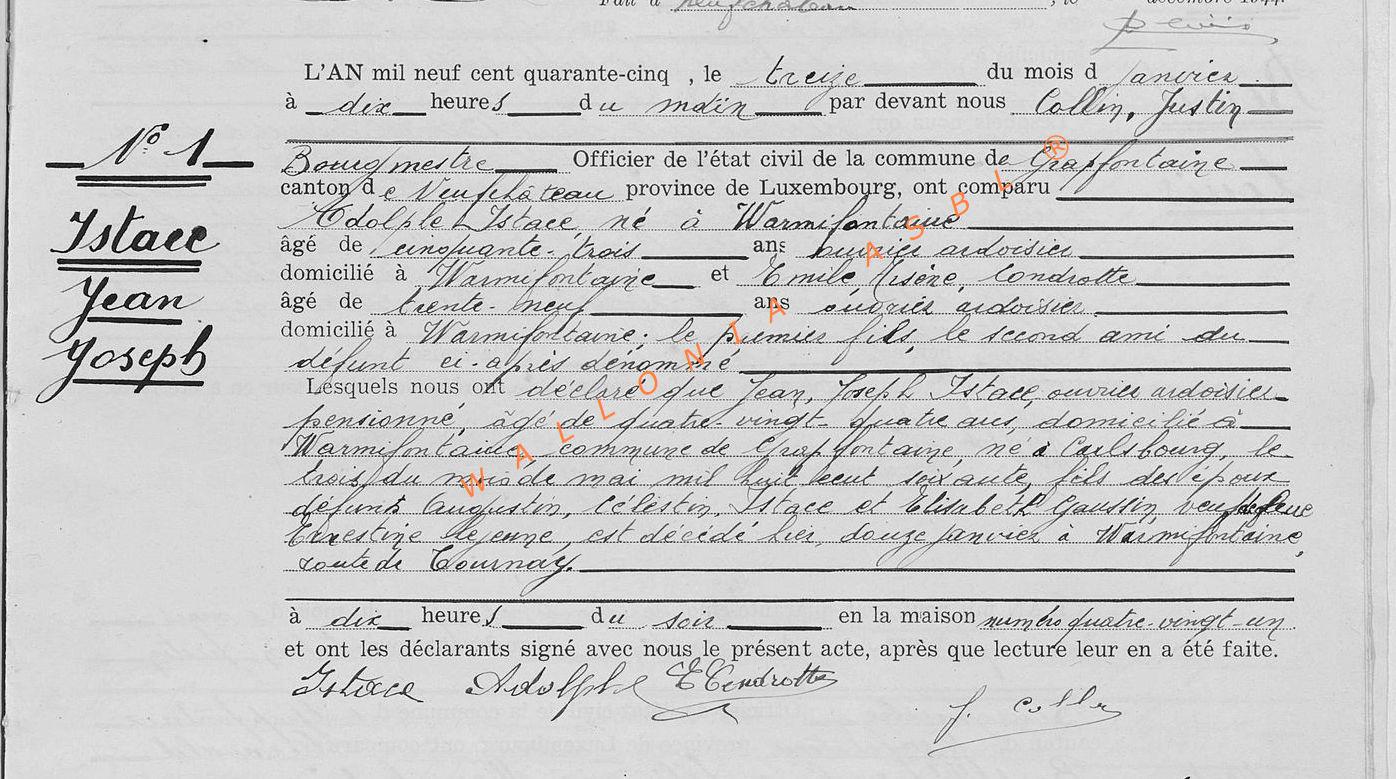 Fait à Neufchâteau, le décembre 1944.
L'AN mil neuf cent quarante-cinq , le treize du mois d Janvier .
à dix heures du matin par devant nous Collin, Justin
Bourgmestre Officier de l'état civil de la commune de Grapfontaine
N° 1
canton de Neufchâteau province de Luxembourg, ont comparu
Adolphe Istace, né à Warmifontaine
Istace
âgé de cinquante-trois ans ouvrier ardoisier
domicilié à Warmifontaine et Emile, Arsène, Condrotte
Jean
âgé de trente-neuf ans ouvrier ardoisier
domicilié à Warmifontaine; le premier fils, le second ami du
Joseph
défunt ci-après dénommé
Lesquels nous ont déclaré que Jean, Joseph Istace, ouvrier ardoisier
pensionné, âgé de quatre-vingt-quatre ans, domicilié à
Warmifontaine, commune de Grapfontaine, né à Carlsbourg, le
trois du mois de mai mil huit cent soixante, fils des époux
défunts Augustin, Célestin, Istace et Elisabeth Gaussin, veuf de feue
Ernestine Lejeune, est décédé hier, douze janvier à Warmifontaine,
route de Tournay.
à dix heures du soir en la maison numéro quatre-vingt-un
et ont les déclarants signé avec nous le présent acte, après que lecture leur en a été faite.
Istace Adolphe E Condrotte
J. Collin
WALLONIA ASBL ®